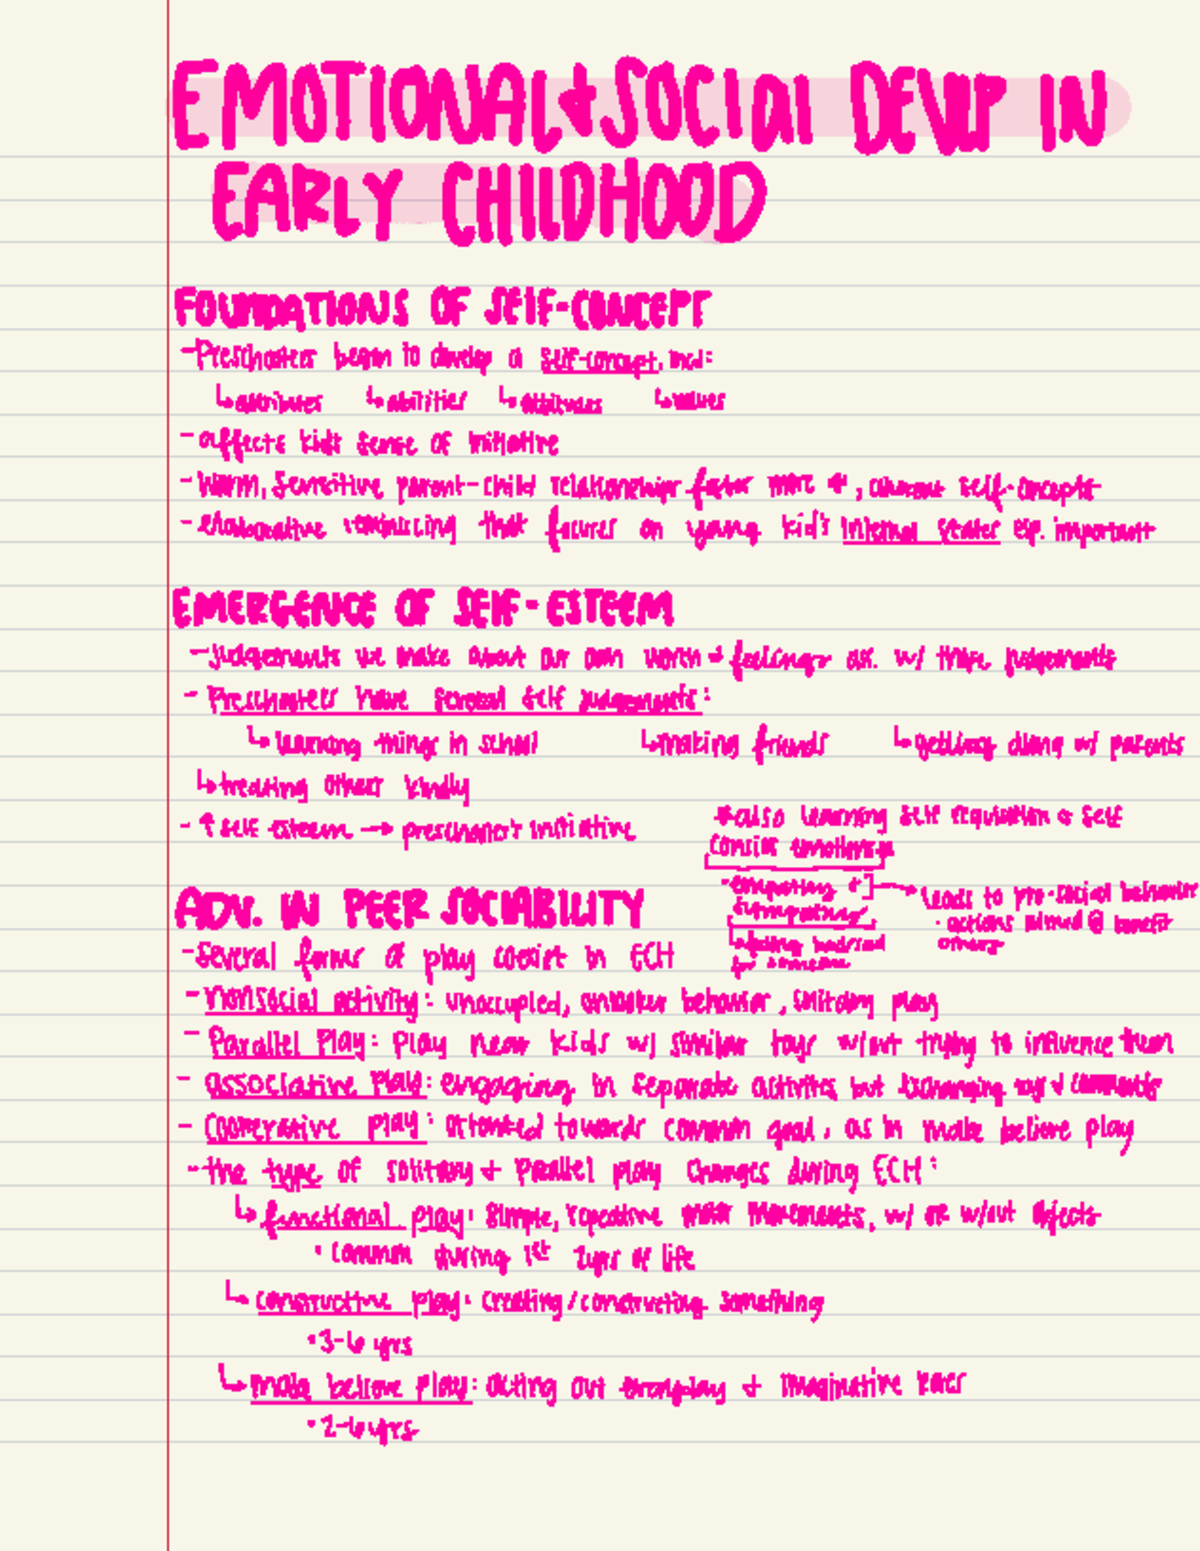 EMOTIONAL & SOCIAL DEVLP IN
EARLY CHILDHOOD
FOUNDATIONS OF SELF-CONCEPT
- Preschoolers begin to develop a self-concept, incl:
↳ attributes ↳ abilities ↳ attitudes ↳ values
- affects kid's sense of initiative
- Warm, sensitive parent-child relationships foster more +, coherent self-concepts
- elaborative reminiscing that focuses on young kid's internal states esp. important
EMERGENCE OF SELF-ESTEEM
- judgements we make about our own worth + feelings as. w/ those judgements
- Preschoolers have several self judgements:
↳ learning things in school ↳ making friends ↳ getting along w/ parents
↳ treating others kindly
- ↑ self esteem → preschooler's initiative
* also learning self regulation & self
concious emotions
- empathy + ] → leads to pro-social behavior
sympathy
· actions aimed @ benefit
others
↳ feeling bad/sad
for someone
ADV. IN PEER SOCIABILITY
- Several forms of play coexist in ECH
- nonsocial activity: unoccupied, onlooker behavior, solitary play
- Parallel Play: play near kids w/ similar toys w/out trying to influence them
- associative play: engaging in separate activites, but exchanging toys & comments
- Cooperative play: oriented towards common goal, as in make believe play
- the type of solitary + parallel play changes during ECH:
↳ functional play: simple, repeative motor movements, w/ or w/out objects
· common during 1st 2yrs of life
↳ constructive play: creating/constructing something
· 3-6 yrs
↳ make believe play: acting out everyday + imaginative roles
· 2-6 yrs